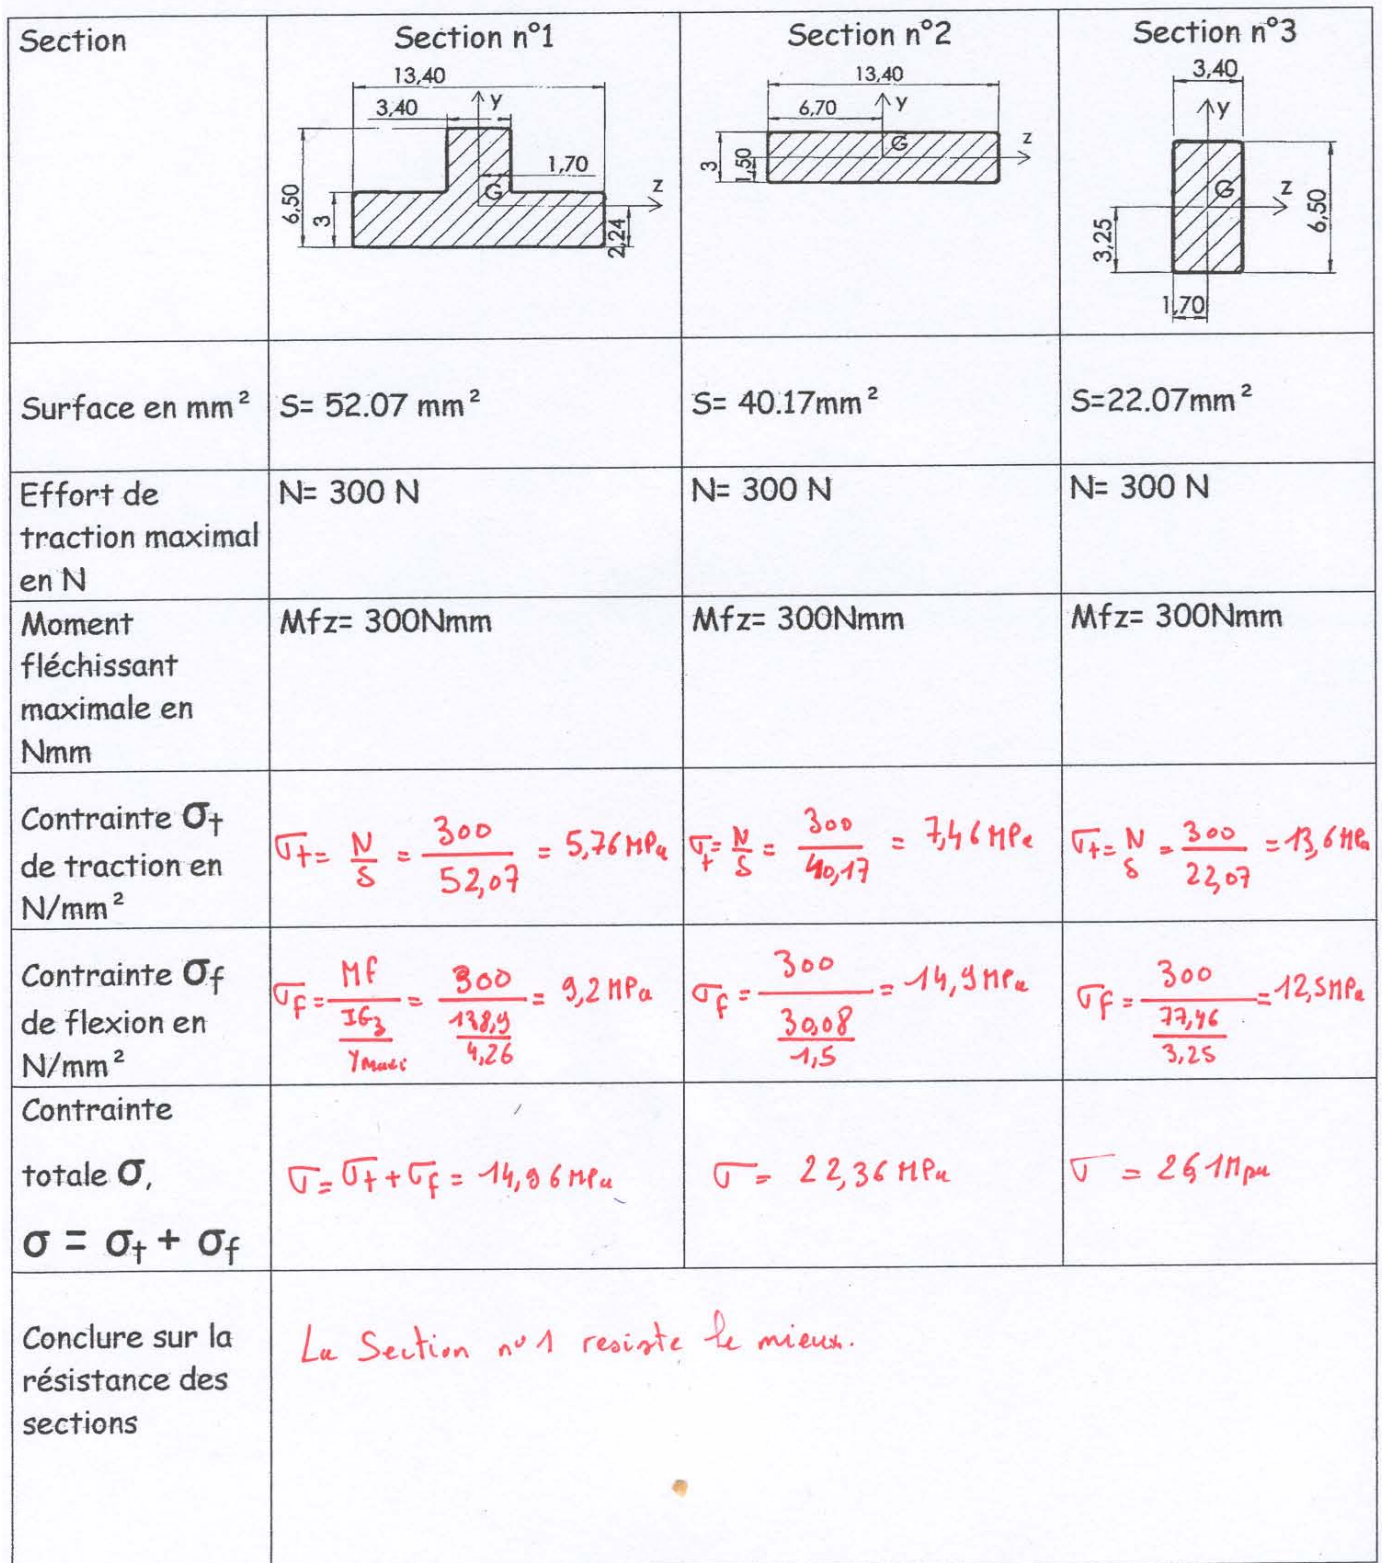 Section
Section n°1
Section n°2
Section n°3
13,40
3,40
y
1,70
G
z
6,50
3
2,24
13,40
6,70
y
G
z
3
1,50
3,40
y
G
z
6,50
3,25
1,70
Surface en mm²
S= 52.07 mm²
S= 40.17mm²
S=22.07mm²
Effort de
traction maximal
en N
N= 300 N
N= 300 N
N= 300 N
Moment
fléchissant
maximale en
Nmm
Mfz= 300Nmm
Mfz= 300Nmm
Mfz= 300Nmm
Contrainte σt
de traction en
N/mm²
σt = N/S = 300/52,07 = 5,76 MPa
σt = N/S = 300/40,17 = 7,46 MPa
σt = N/S = 300/22,07 = 13,6 MPa
Contrainte σf
de flexion en
N/mm²
σf = Mf/(IGz/Ymaxi) = 300/(138,9/4,26) = 9,2 MPa
σf = 300/(30,08/1,5) = 14,9 MPa
σf = 300/(77,46/3,25) = 12,5 MPa
Contrainte
totale σ,
σ = σt + σf
σ = σt + σf = 14,96 MPa
σ = 22,36 MPa
σ = 26,1 Mpa
Conclure sur la
résistance des
sections
La Section n°1 resiste le mieux.